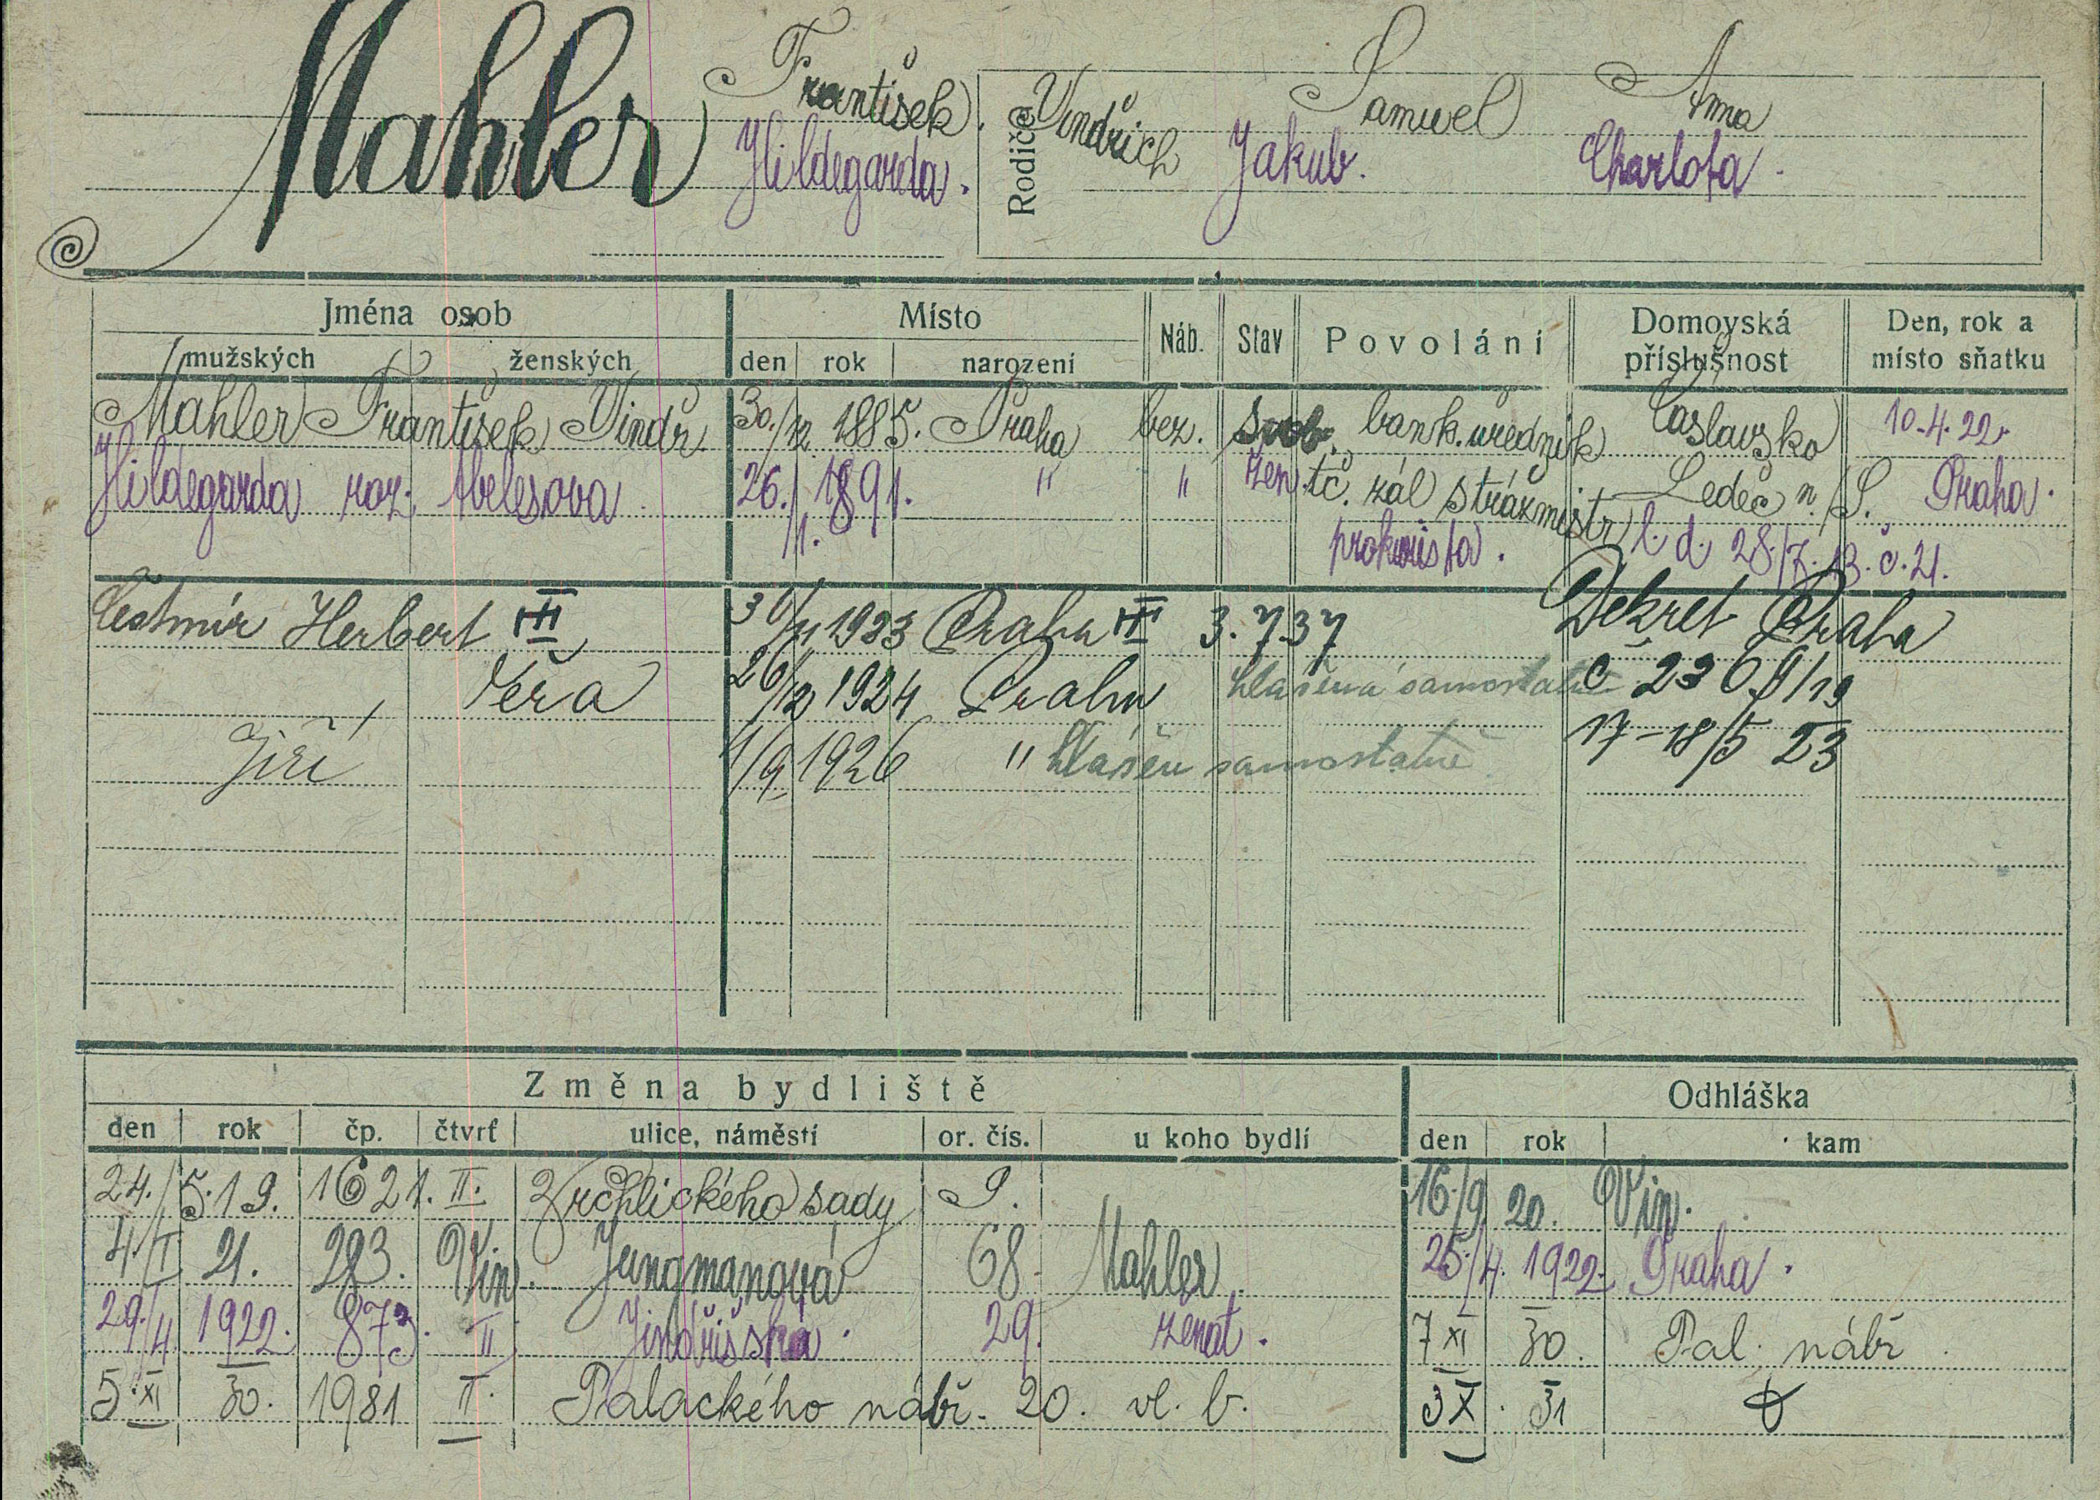 Mahler František Jindřich Samuel Anna
Hildegarda. Jakub. Charlota.
Rodiče
Jména osob Místo Náb. Stav Povolání Domovská příslušnost Den, rok a místo sňatku
mužských ženských den rok narození
Mahler František Jindř. 30./12 1885. Praha bez. svob. bank. úředník Čáslavsko 10.4.22.
Hildegarda roz. Abelesova 26./1. 1891. " " žen. tč. zál strážmistr Ledeč n./S. Praha.
prokurista. l. d. 28./7. 13. č. 21.
Čestmír Herbert III 30/11 1923 Praha III 3.7.37 Dekret Praha
Věra 26/12 1924 Praha hlášena samostatně č 230
Jiří 1/9 1926 " hlášen samostatně 17-18/5 23
Změna bydliště Odhláška
den rok čp. čtvrť ulice, náměstí or. čís. u koho bydlí den rok kam
24./5. 19. 1621. II. Vrchlického sady 9. 16./9 20. Vin.
4/I 21. 283. Vin. Jungmanová 68. Mahler 25./4. 1922. Praha.
29./4 1922. 873. II Jindřišská. 29. ženat. 7 XI 30. Pal. nábř.
5. XI 30. 1981 II. Palackého nábř. 20. vl. b. 3 X. 31